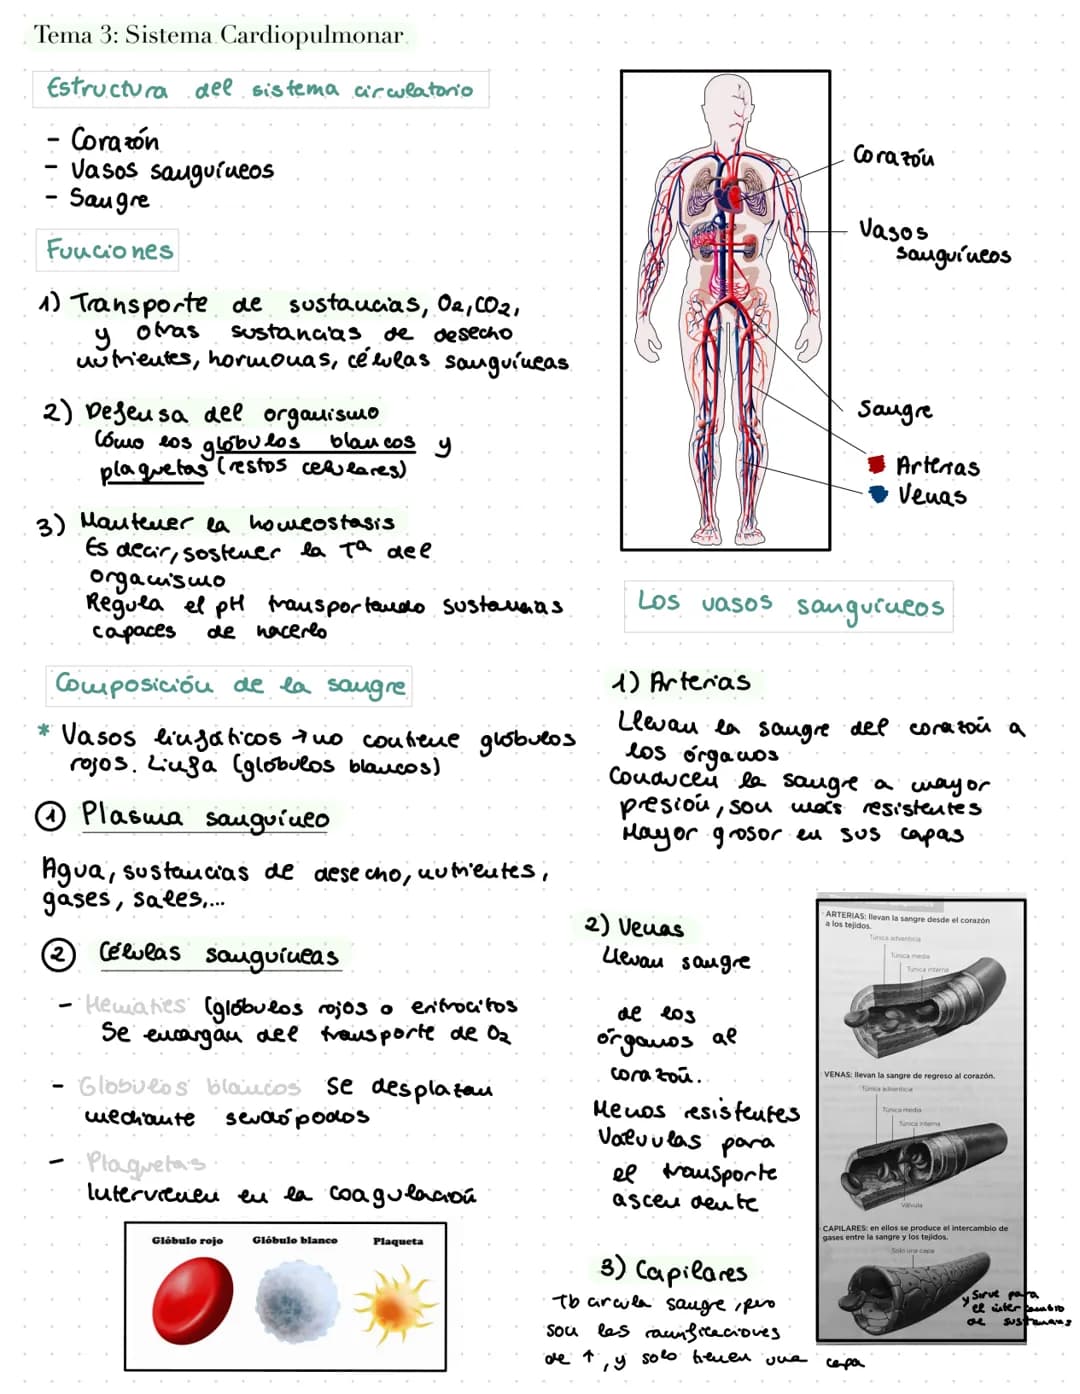 Tema 3: Sistema Cardiopulmonar
Estructura del sistema circulatorio
- Corazón
- Vasos sanguíneos
- Sangre
Funciones
1) Transporte de sustancias, O2, CO2,
y otras sustancias de desecho
nutrientes, hormonas, células sanguíneas
2) Defensa del organismo
Cómo los glóbulos blancos y
plaquetas (restos celulares)
3) Mantener la homeostasis
Es decir, sostener la Tª del
organismo
Regula el pH transportando sustancias
capaces de hacerlo
Composición de la sangre
* Vasos linfáticos → no contiene glóbulos
rojos. Linfa (glóbulos blancos)
① Plasma sanguíneo
Agua, sustancias de desecho, nutrientes,
gases, sales,...
② Células sanguíneas
- Hematíes (glóbulos rojos o eritrocitos
Se encargan del transporte de O2
- Glóbulos blancos se desplazan
mediante seudópodos
- Plaquetas
Intervienen en la coagulación
Glóbulo rojo Glóbulo blanco Plaqueta
Corazón
Vasos
sanguíneos
Sangre
Arterias
Venas
Los vasos sanguíneos
1) Arterias
Llevan la sangre del corazón a
los órganos
Conducen la sangre a mayor
presión, son más resistentes
Mayor grosor en sus capas
2) Venas
Llevan sangre
de los
órganos al
corazón.
Menos resistentes
Valvulas para
el transporte
ascendente
3) Capilares
Tb circula sangre, pero
son las ramificaciones
de ↑, y solo tienen una capa
ARTERIAS: llevan la sangre desde el corazón
a los tejidos.
Túnica adventicia
Túnica media
Túnica interna
VENAS: llevan la sangre de regreso al corazón.
Túnica adventicia
Túnica media
Túnica interna
Válvula
CAPILARES: en ellos se produce el intercambio de
gases entre la sangre y los tejidos.
Solo una capa
y sirve para
el intercambio
de sustancias